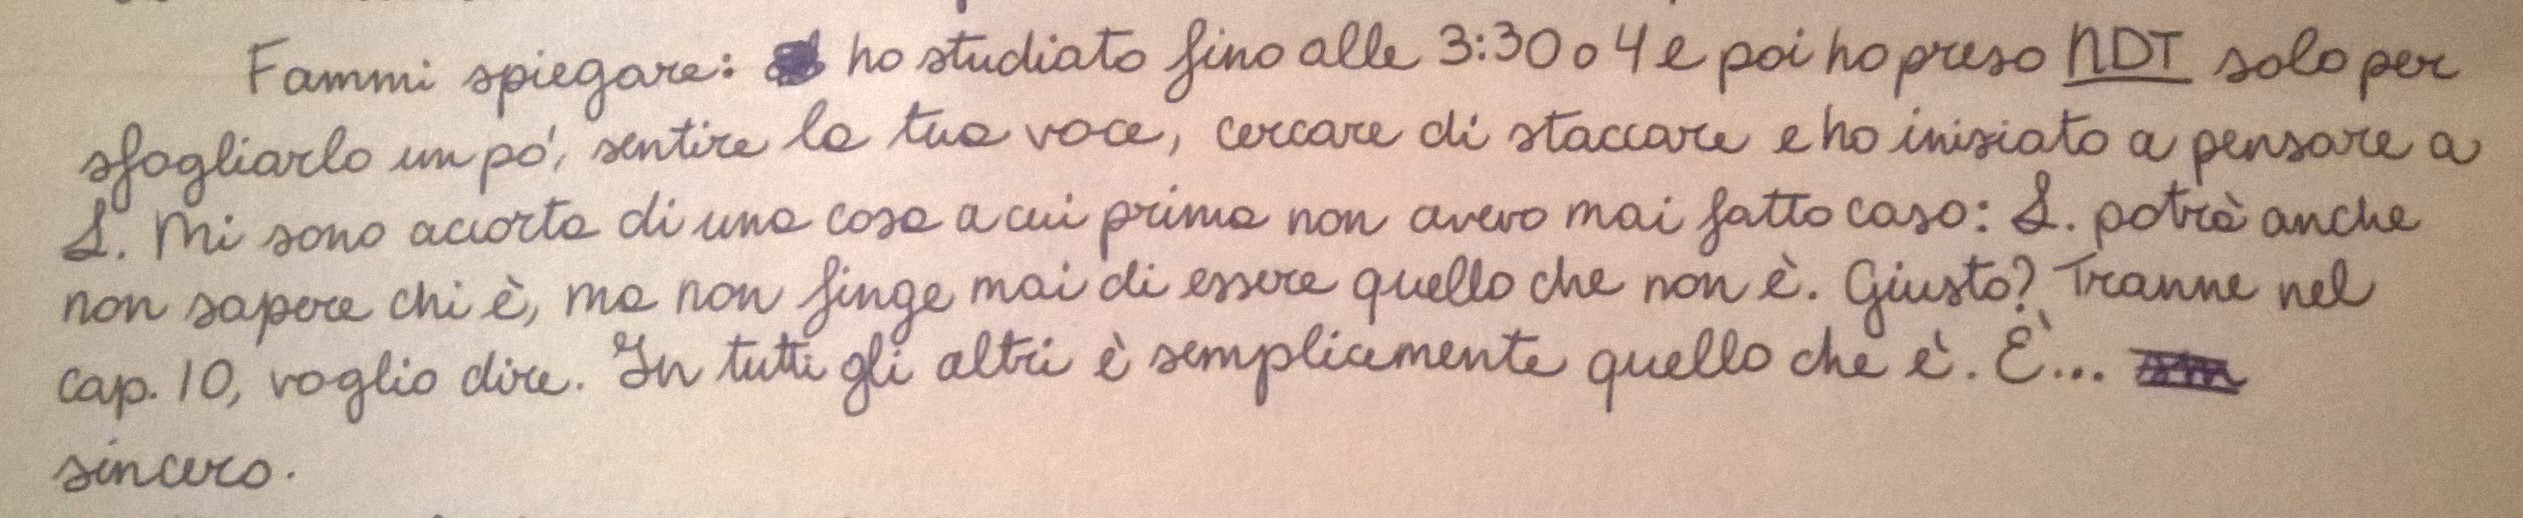 Fammi spiegare: ho studiato fino alle 3:30 o 4 e poi ho preso NDT solo per
sfogliarlo un pó, sentire la tua voce, cercare di staccare e ho iniziato a pensare a
S. Mi sono accorta di una cosa a cui prima non avevo mai fatto caso: S. potrà anche
non sapere chi è, ma non finge mai di essere quello che non è. Giusto? Tranne nel
cap. 10, voglio dire. In tutti gli altri è semplicemente quello che è. È...
sincero.